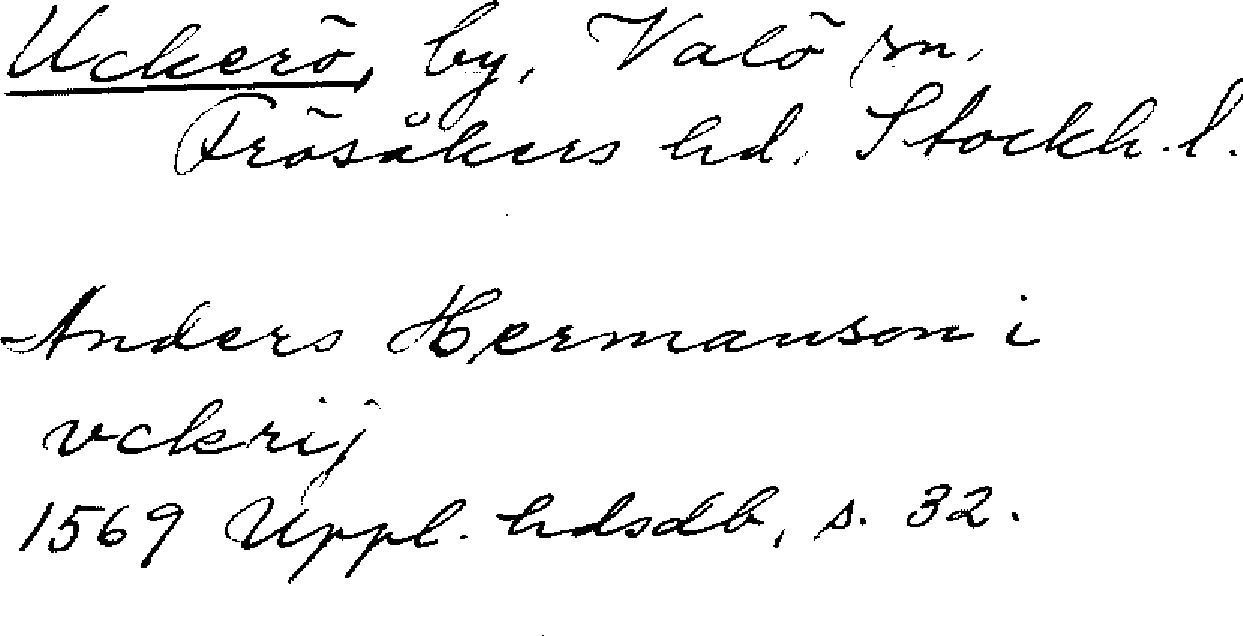 Uckerö, by, Valö sn,
Frösåkers hd, Stockh. l.
Anders Hermanson i
vckrij
1569 Uppl. hdsdb, s. 32.